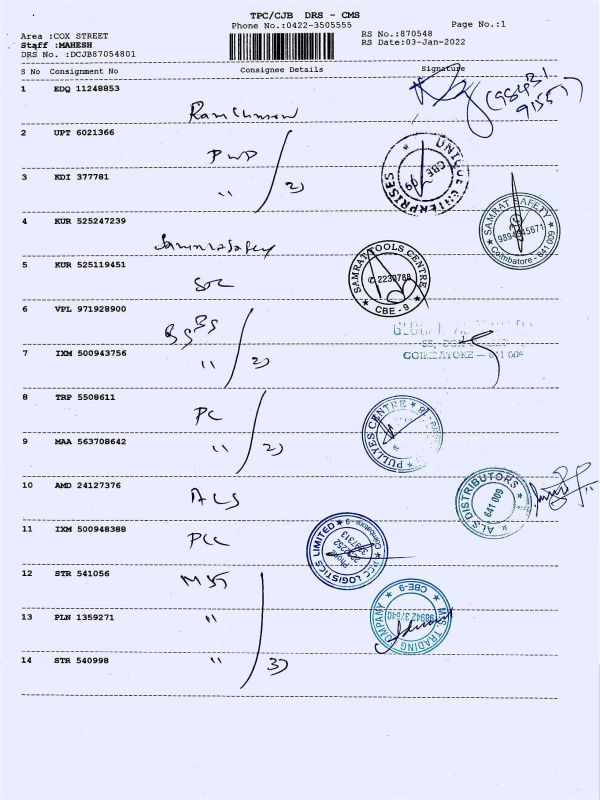 TPC/CJB DRS - CMS
Phone No.:0422-3505555
Page No.:1
Area :COX STREET
Staff :MAHESH
DRS No. :DCJB87054801
RS No.:870548
RS Date:03-Jan-2022
S No Consignment No Consignee Details Signature
1 EDQ 11248853
2 UPT 6021366
PWD
3 KDI 377781
" 2)
UNIQUE ENTERPRISES
CBE
4 KUR 525247239
SAMRAT SAFETY
9894345671
Coimbatore - 641 009
5 KUR 525119451
STC
SAMRAT TOOLS CENTRE
✆ 2230788
CBE - 9
6 VPL 971928900
BSBS
GLOBAL
COIMBATORE — 641 009
7 IXM 500943756
" 2)
8 TRP 5508611
PC
PULLYES CENTRE
9 MAA 563708642
" 2)
10 AMD 24127376
ALS
ALS DISTRIBUTORS
641 009
11 IXM 500948388
PCC
PCC LOGISTICS LIMITED
Coimbatore - 9
Phone
12 STR 541056
M.S. TRADING COMPANY
CBE-9
13 PLN 1359271
"
14 STR 540998
" 3)